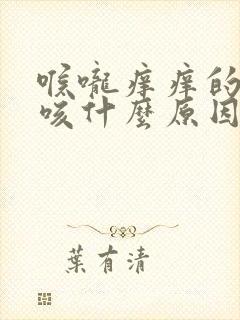 喉嚨痒痒的
咳什麼原因
葉有清